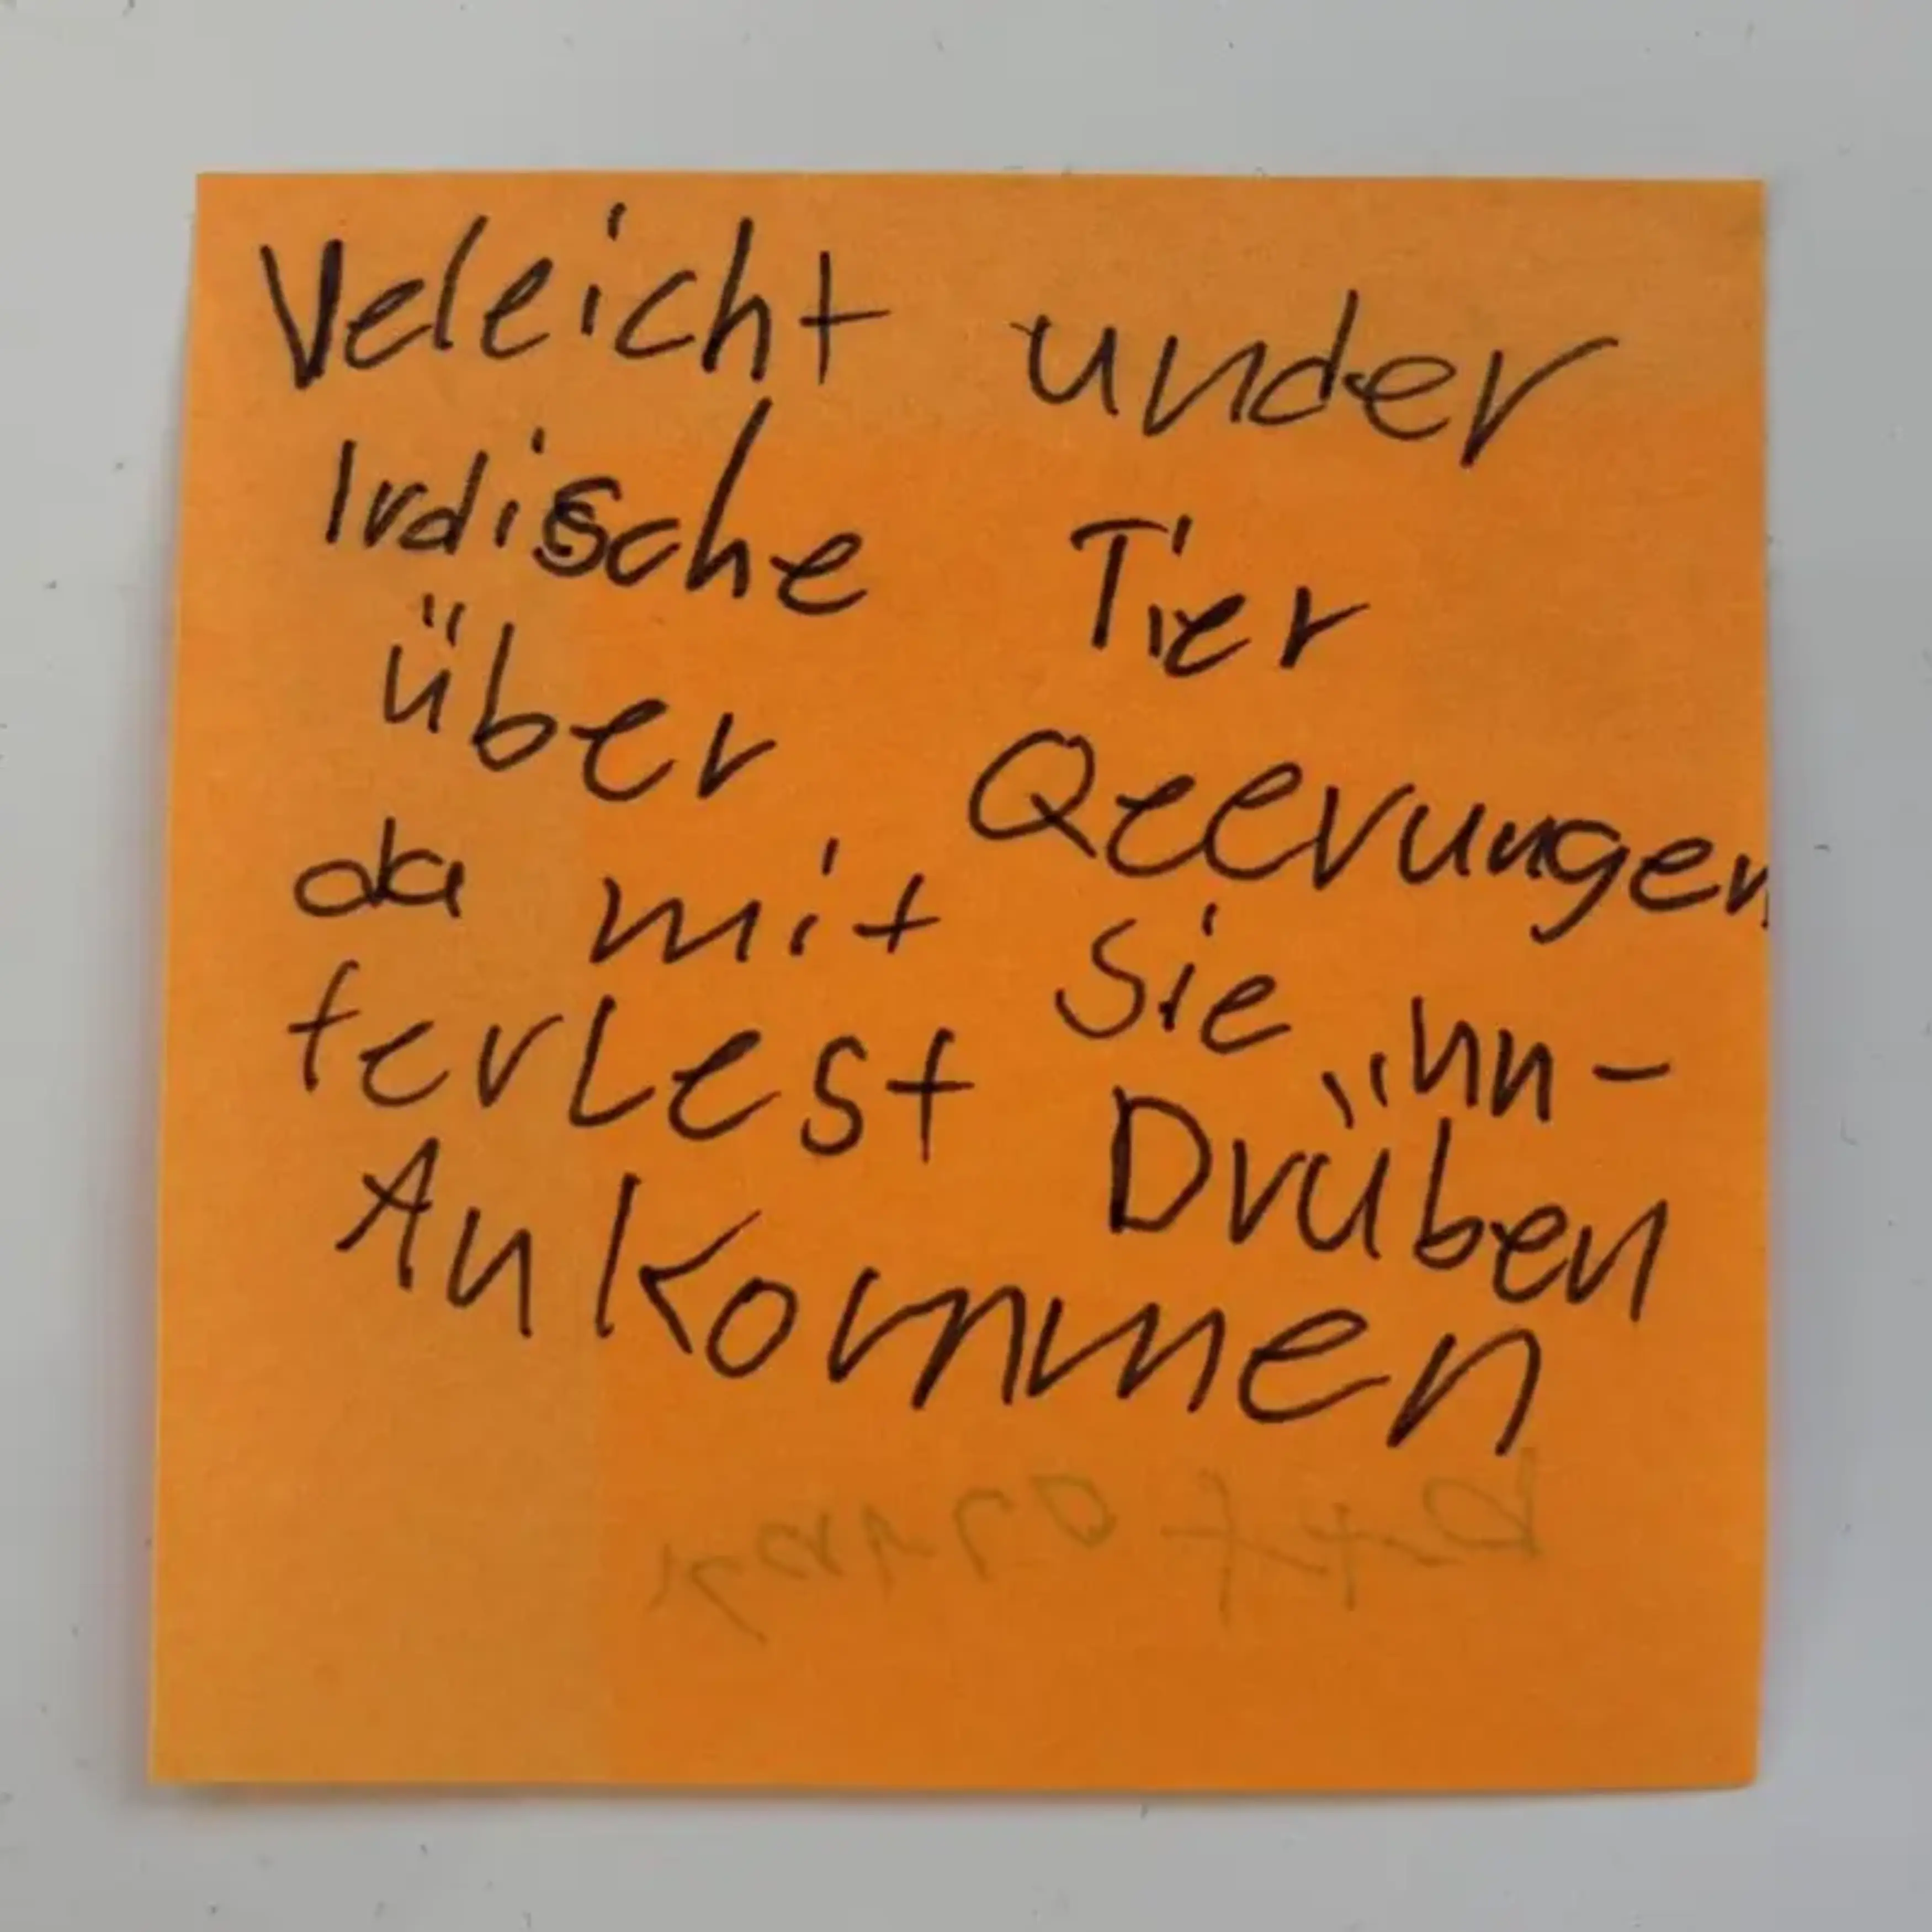 Veleicht under
Irdische Tier
über Qeerungen
da mit Sie unn-
terLest Drüben
AnKommen